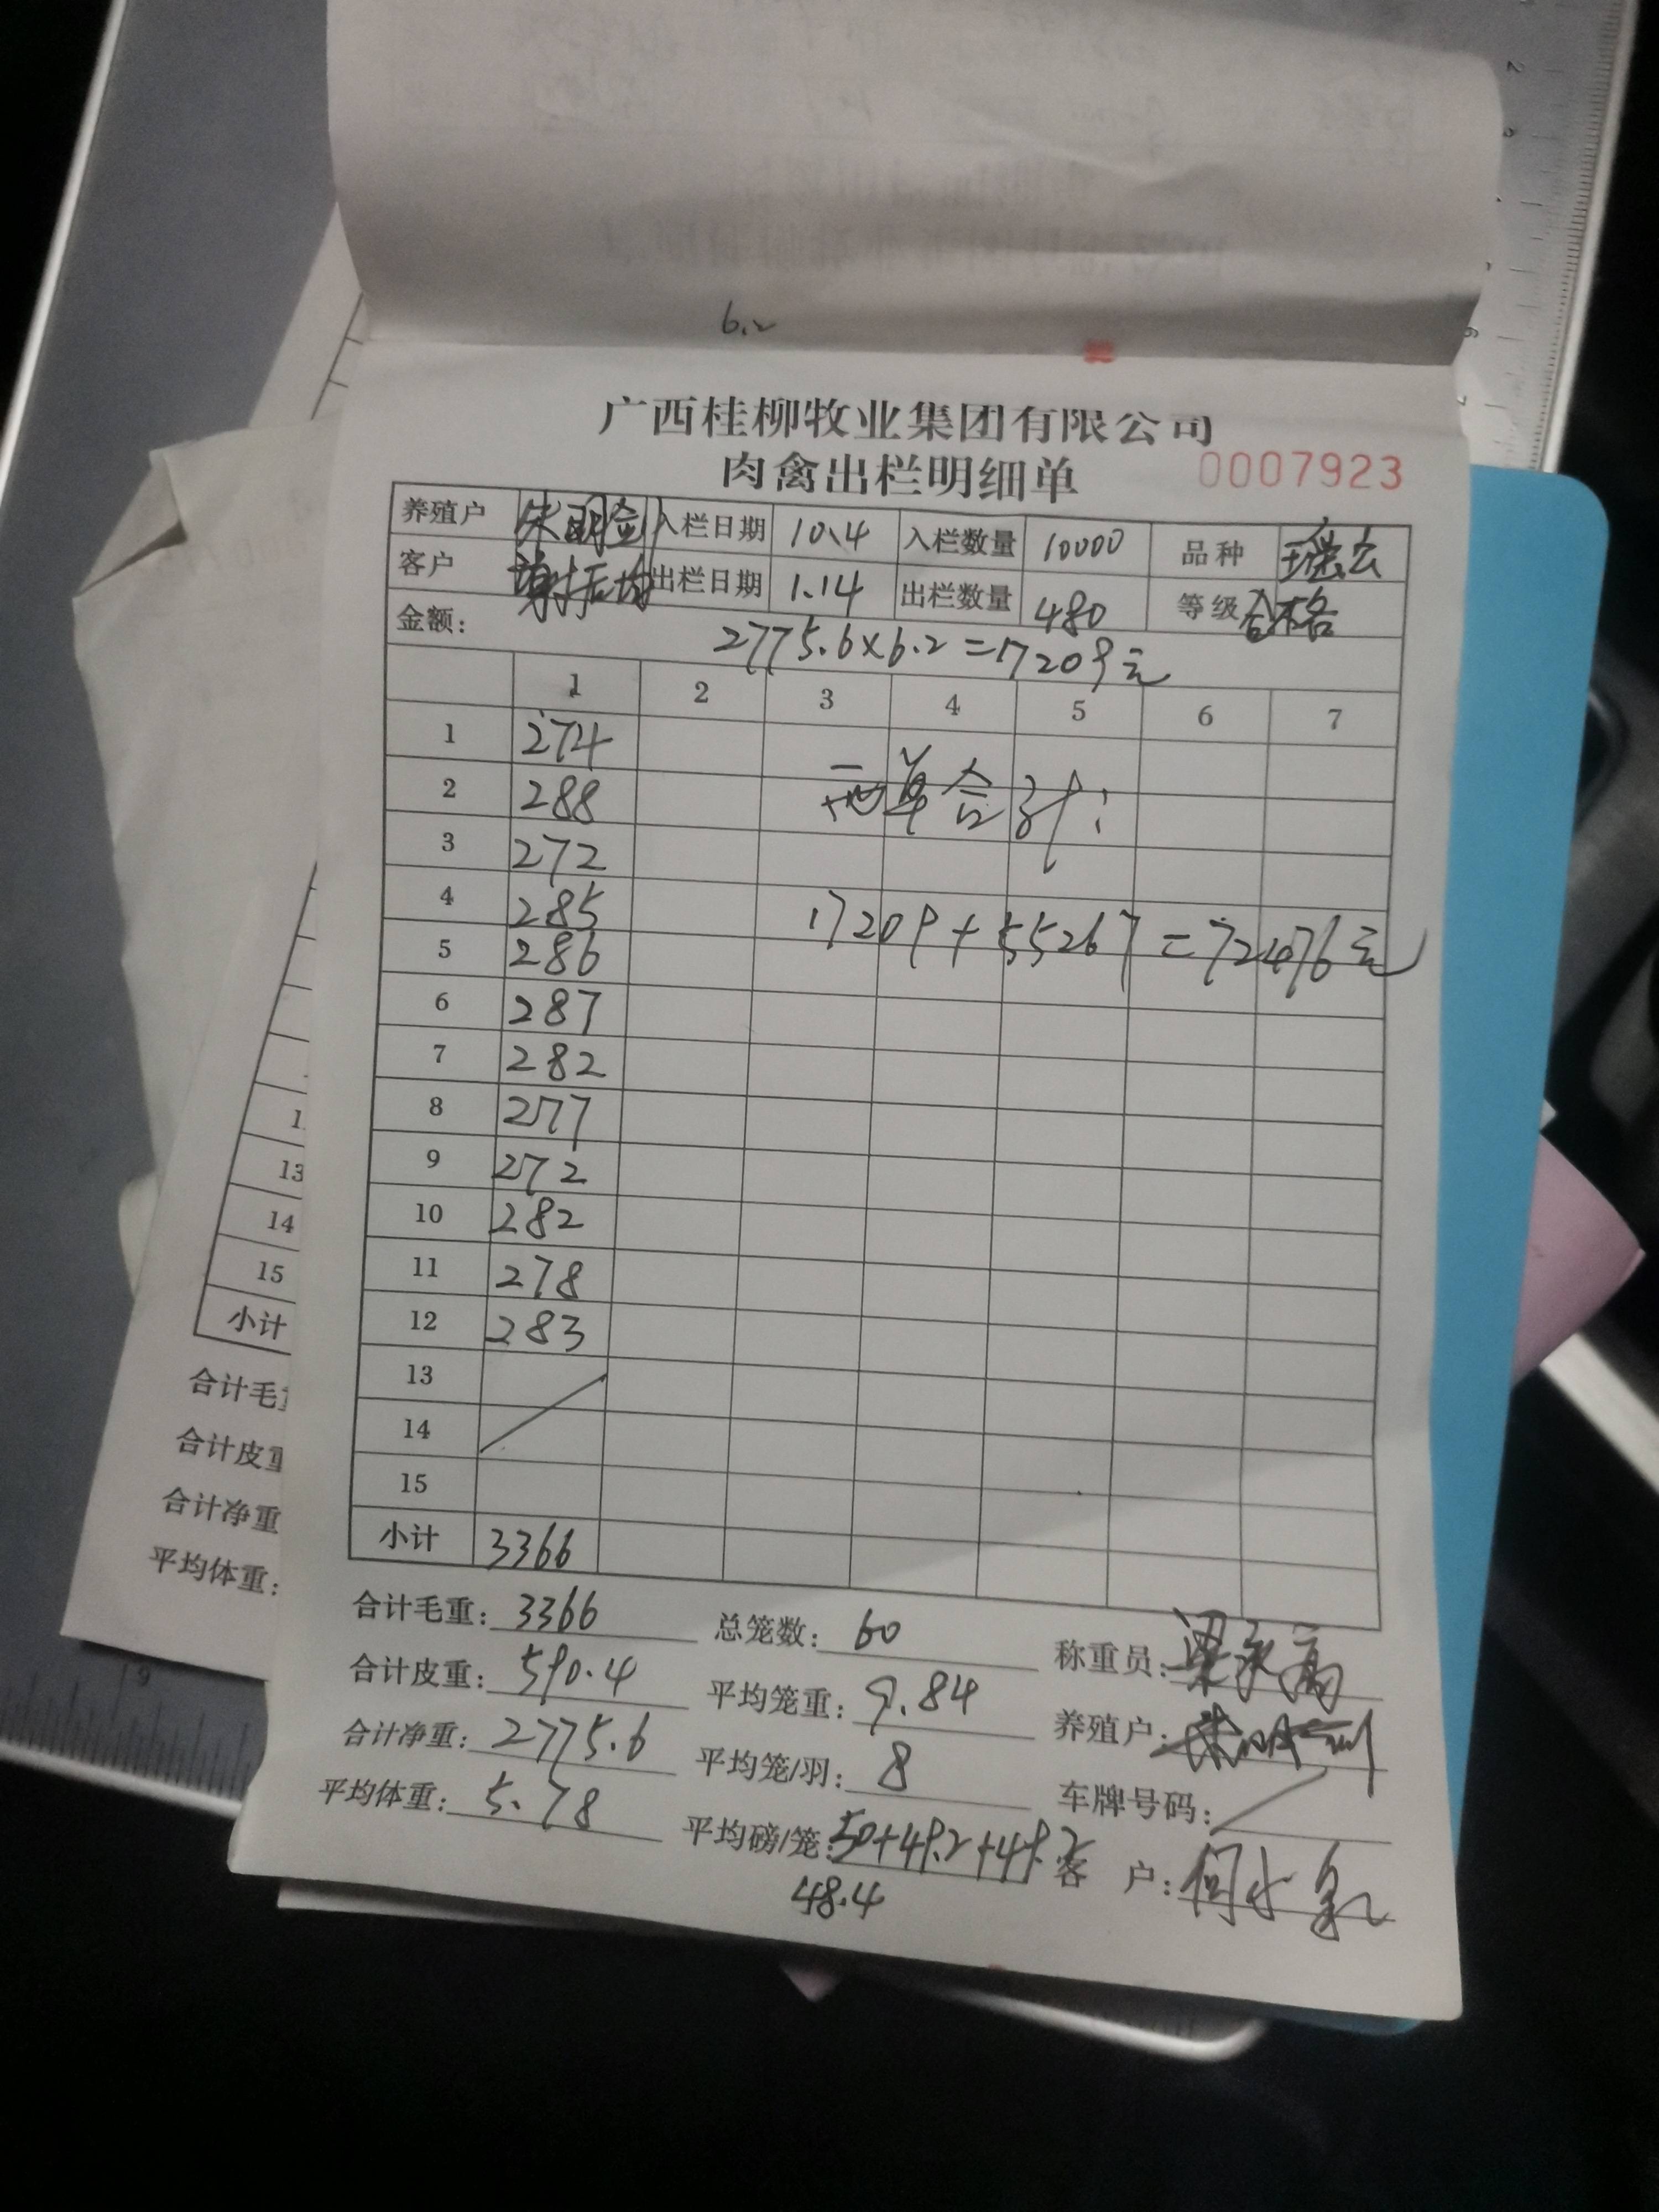 6.2
广西桂柳牧业集团有限公司
肉禽出栏明细单 0007923
养殖户 朱明剑 入栏日期 10.4 入栏数量 10000 品种 瑶公
客户 谢振均 出栏日期 1.14 出栏数量 480 等级 合格
金额: 2775.6×6.2=17209元
1 2 3 4 5 6 7
1 274
2 288 两单合计:
3 272
4 285 17209+55267=72476元
5 286
6 287
7 282
8 277
9 272
10 282
11 278
12 283
13
14
15
小计 3366
合计毛重: 3366 总笼数: 60 称重员:
合计皮重: 590.4 平均笼重: 9.84 养殖户: 朱明剑
合计净重: 2775.6 平均笼/羽: 8 车牌号码:
平均体重: 5.78 平均磅/笼: 50+49.2+49.2 客 户:
48.4
13
14
15
小计
合计毛
合计皮重
合计净重
平均体重:
9